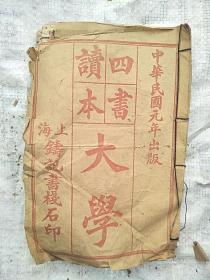 中華民國元年出版
四書讀本
大學
上海
鑄記書棧石印